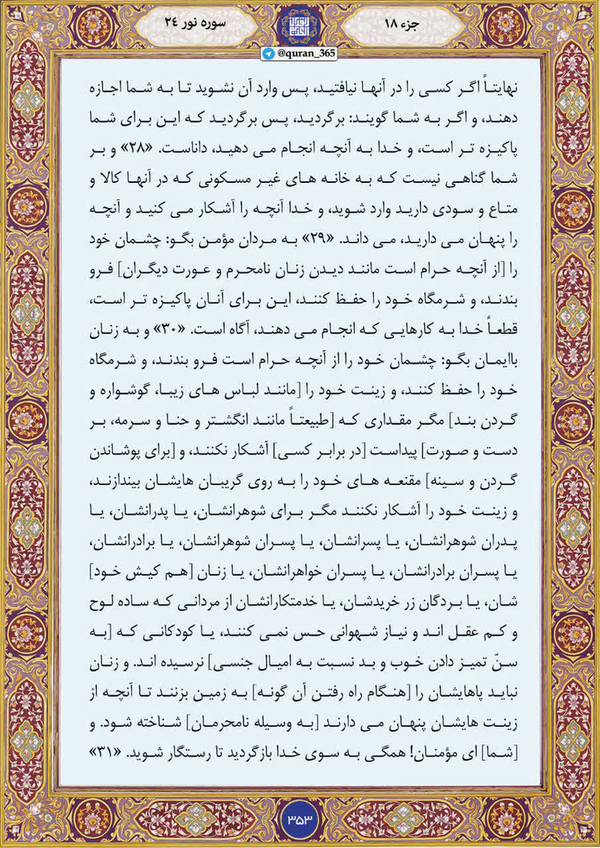 جزء ۱۸
سوره نور ۲۴
@quran_365
نهایتاً اگر کسی را در آنها نیافتید، پس وارد آن نشوید تا به شما اجازه
دهند، و اگر به شما گویند: برگردید، پس برگردید که این برای شما
پاکیزه تر است، و خدا به آنچه انجام می دهید، داناست. «۲۸» و بر
شما گناهی نیست که به خانه های غیر مسکونی که در آنها کالا و
متاع و سودی دارید وارد شوید، و خدا آنچه را آشکار می کنید و آنچه
را پنهان می دارید، می داند. «۲۹» به مردان مؤمن بگو: چشمان خود
را [از آنچه حرام است مانند دیدن زنان نامحرم و عورت دیگران] فرو
بندند، و شرمگاه خود را حفظ کنند، این برای آنان پاکیزه تر است،
قطعاً خدا به کارهایی که انجام می دهند، آگاه است. «۳۰» و به زنان
باایمان بگو: چشمان خود را از آنچه حرام است فرو بندند، و شرمگاه
خود را حفظ کنند، و زینت خود را [مانند لباس های زیبا، گوشواره و
گردن بند] مگر مقداری که [طبیعتاً مانند انگشتر و حنا و سرمه، بر
دست و صورت] پیداست [در برابر کسی] آشکار نکنند، و [برای پوشاندن
گردن و سینه] مقنعه های خود را به روی گریبان هایشان بیندازند،
و زینت خود را آشکار نکنند مگر برای شوهرانشان، یا پدرانشان، یا
پدران شوهرانشان، یا پسرانشان، یا پسران شوهرانشان، یا برادرانشان،
یا پسران برادرانشان، یا پسران خواهرانشان، یا زنان [هم کیش خود]
شان، یا بردگان زر خریدشان، یا خدمتکارانشان از مردانی که ساده لوح
و کم عقل اند و نیاز شهوانی حس نمی کنند، یا کودکانی که [به
سنّ تمیز دادن خوب و بد نسبت به امیال جنسی] نرسیده اند. و زنان
نباید پاهایشان را [هنگام راه رفتن آن گونه] به زمین بزنند تا آنچه از
زینت هایشان پنهان می دارند [به وسیله نامحرمان] شناخته شود. و
[شما] ای مؤمنان! همگی به سوی خدا بازگردید تا رستگار شوید. «۳۱»
۳۵۳